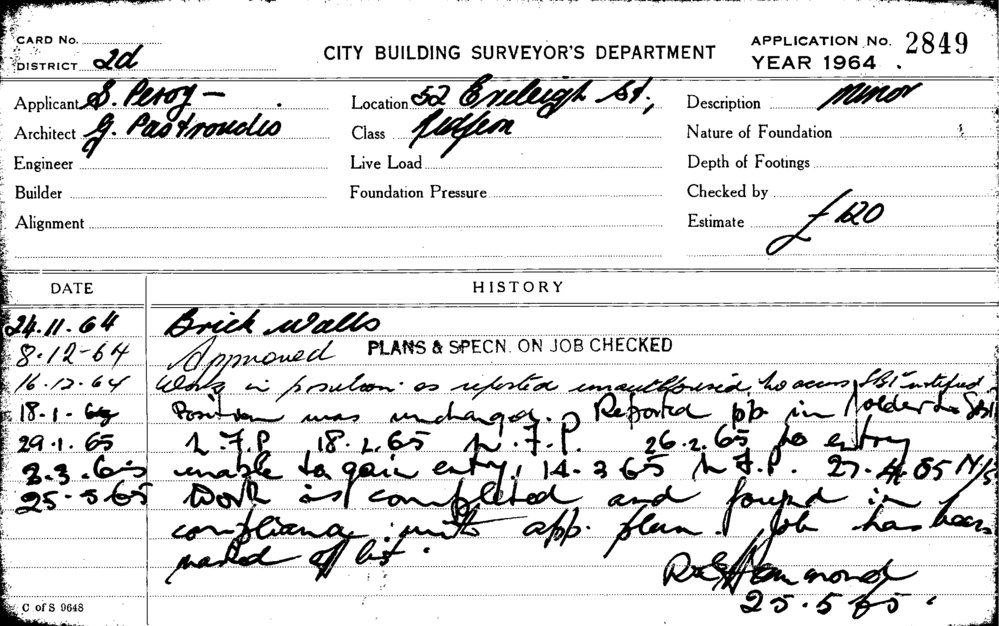 CARD No.
DISTRICT 2d
CITY BUILDING SURVEYOR'S DEPARTMENT
APPLICATION No. 2849
YEAR 1964
Applicant S. Peroy
Location 52 St,
Description Minor
Architect G. Pastroudis
Class
Nature of Foundation
Engineer
Live Load
Depth of Footings
Builder
Foundation Pressure
Checked by
Alignment
Estimate £120
DATE HISTORY
24.11.64 Brick walls
8.12-64 Approved PLANS & SPECN. ON JOB CHECKED
16.12.64 Work in position as reported unauthorised no access notified
18.1. Position was unchanged. Reported pp in folder to
29.1.65 N.F.P. 18.2.65 N.F.P. 26.2.65 no entry
3.3.65 unable to gain entry, 14-3 65 N.F.P. 27.4.65 N/S
25.5 65 Work is completed and found in
compliance with app. plan. Job has been
marked off list.
Hammond
25.5 65
C of S 9648